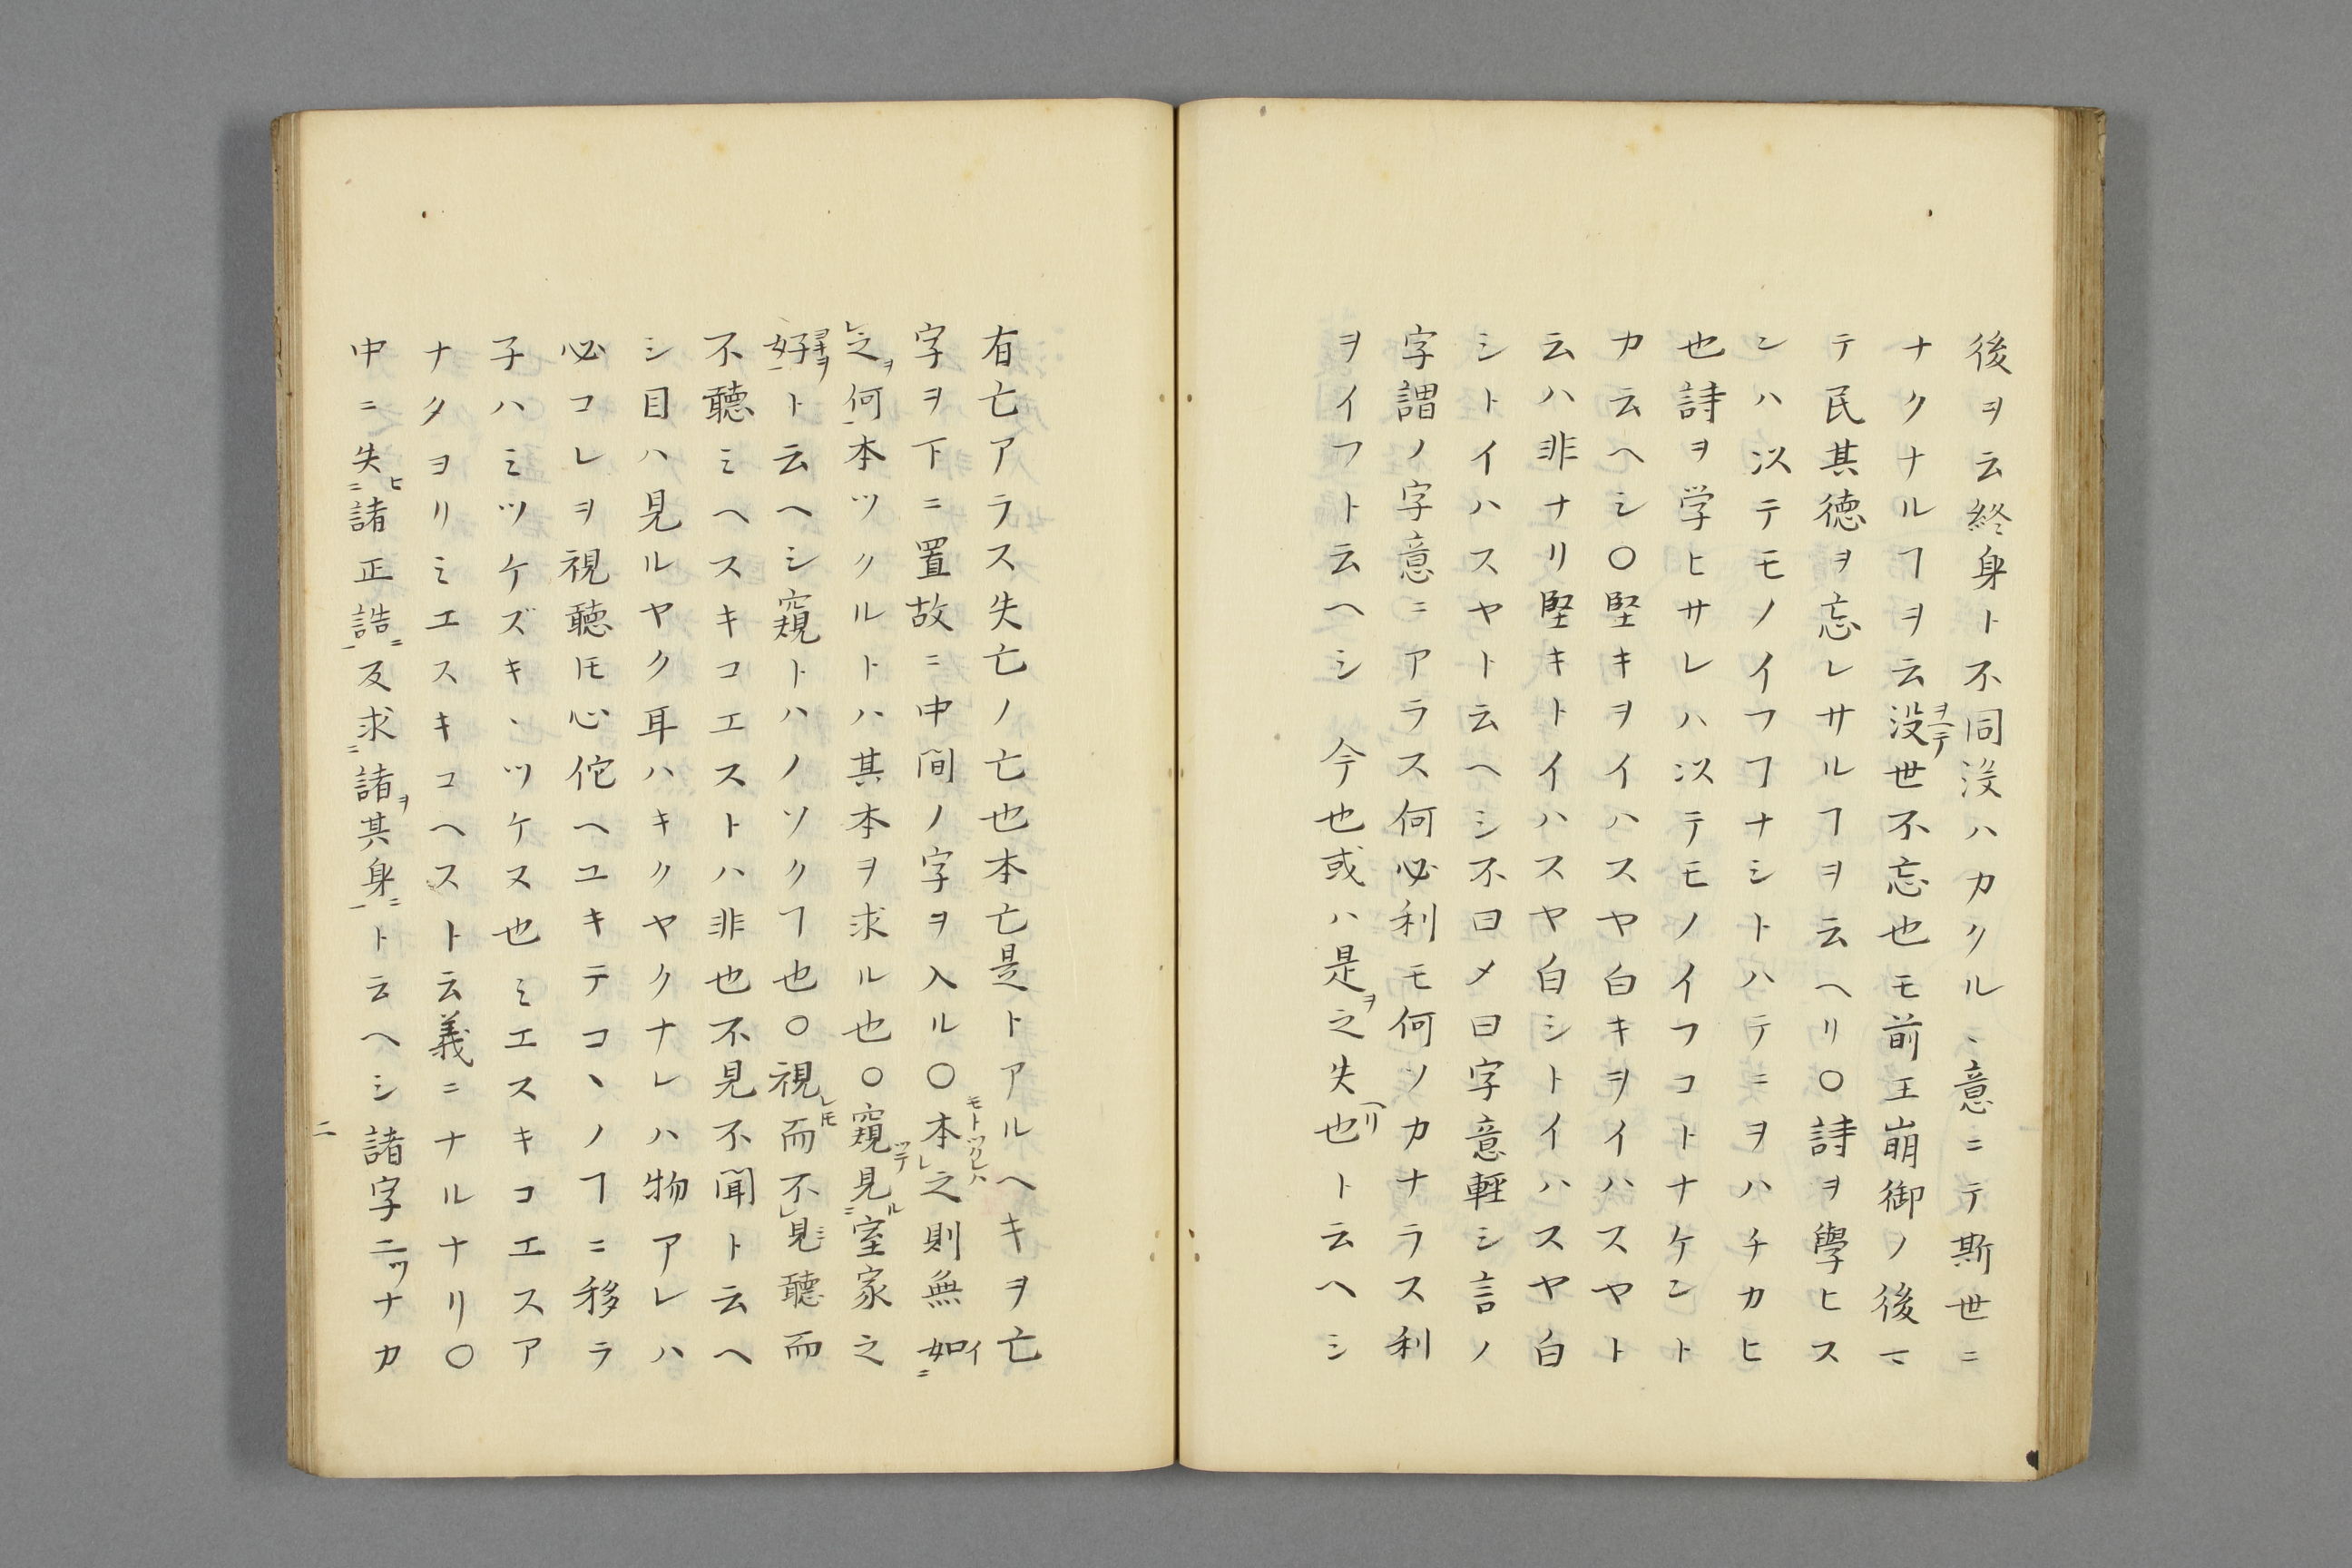 後ヲ云終身ト不同没ハカクルヽ意ニテ斯世ニ
ナクナルヿヲ云没ヲヘテ世不忘也モ前王崩御ノ後マ
テ民其徳ヲ忘レサルヿヲ云ヘリ〇詩ヲ學ヒス
ンハ以テモノイフヿナシトハテニヲハチカヒ
也詩ヲ学ヒサレハ以テモノイフコトナケント
カ云ヘシ〇堅キヲイハスヤ白キヲイハスヤト
云ハ非ナリ堅キトイハスヤ白シトイハスヤ白
シトイハスヤト云ヘシ不曰メ曰字意輕シ言ノ
字謂ノ字意ニアラス何必利モ何ソカナラス利
ヲイフト云ヘシ 今也或ハ是ヲ之失ヘリ也ト云ヘシ
有亡アラス失亡ノ亡也本亡是トアルヘキヲ亡
字ヲ下ニ置故ニ中間ノ字ヲ入ル〇本モトツクレハレ之則無如イ二
レ之ヲ何一本ツクルトハ其本ヲ求ル也〇窺ツテ見ル二室家之
好ヨキヲ一ト云ヘシ窺トハノソクヿ也〇視レ𪜈而不レ見ミ聽而
不聽ミヘスキコエストハ非也不見不聞ト云ヘ
シ目ハ見ルヤク耳ハキクヤクナレハ物アレハ
必コレヲ視聽𪜈心佗ヘユキテコヽノヿニ移ラ
子ハミツケズキヽツケヌ也ミエスキコエスア
ナタヨリミエスキコヘスト云義ニナルナリ〇
中ニ失ヒ二諸正誥ニ一反求二諸ヲ其身ニ一ト云ヘシ諸字二ツナカ
二